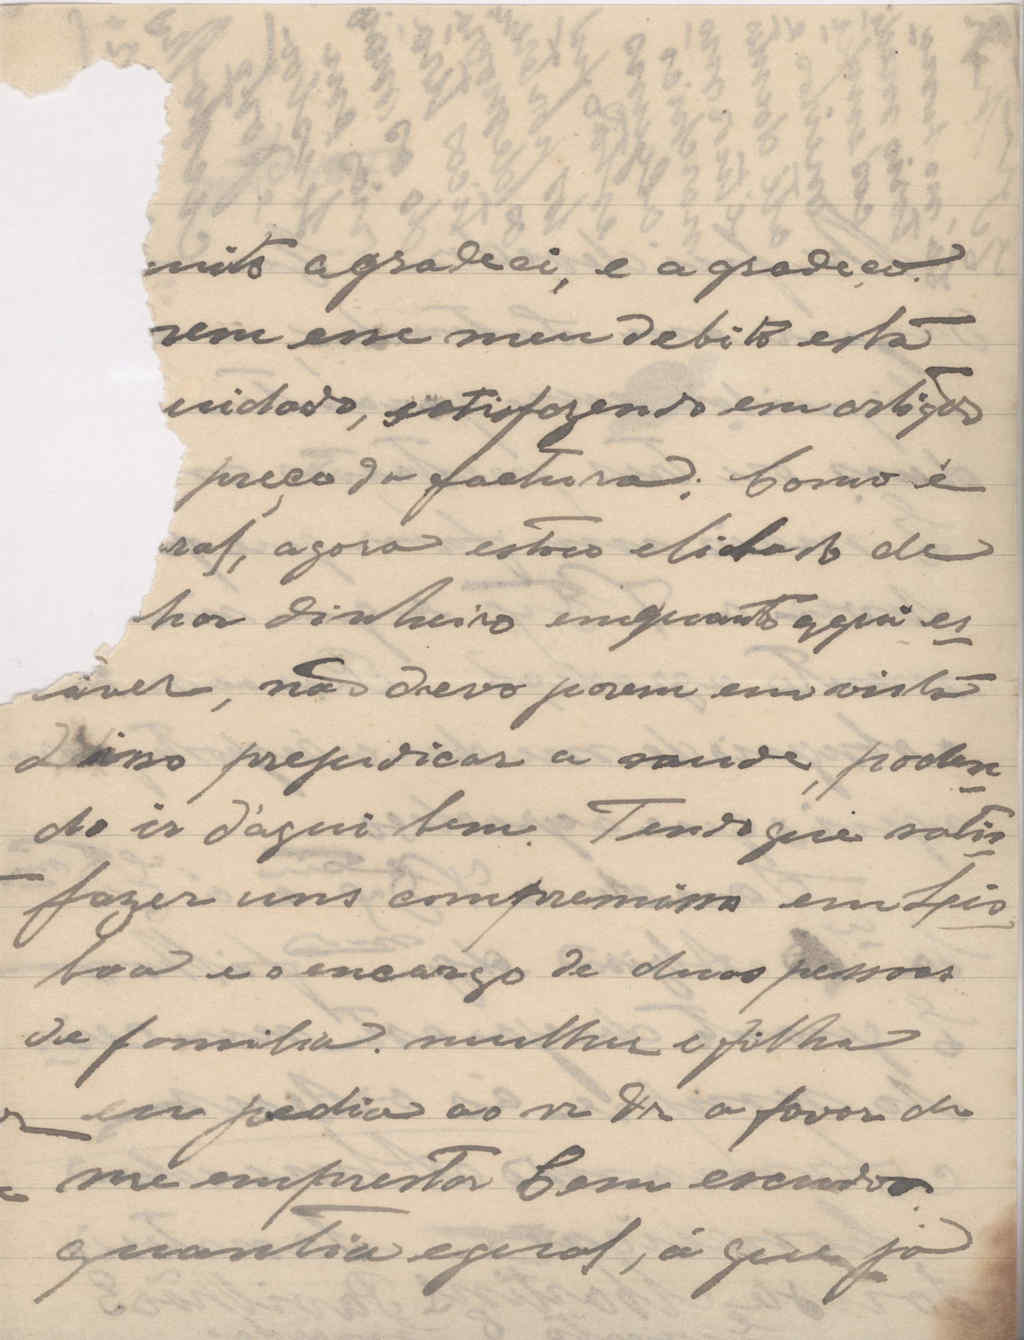 muito agradeci, e agradeço.
rem esse meu debito está
uidado, satisfazendo em artigos
preço da factura. Como é
ral, agora estou de
har dinheiro emquanto aqui es
tiver, não devo porem em vista
d'isso prejudicar a saude, poden
do ir d'aqui bem. Tendo que satis
fazer uns compremissos em Lis
boa e o encargo de duas pessoas
de familia. mulher e filha
eu pedia ao sr Dr o favor de
me emprestar Cem escudos
quantia egual, á que já